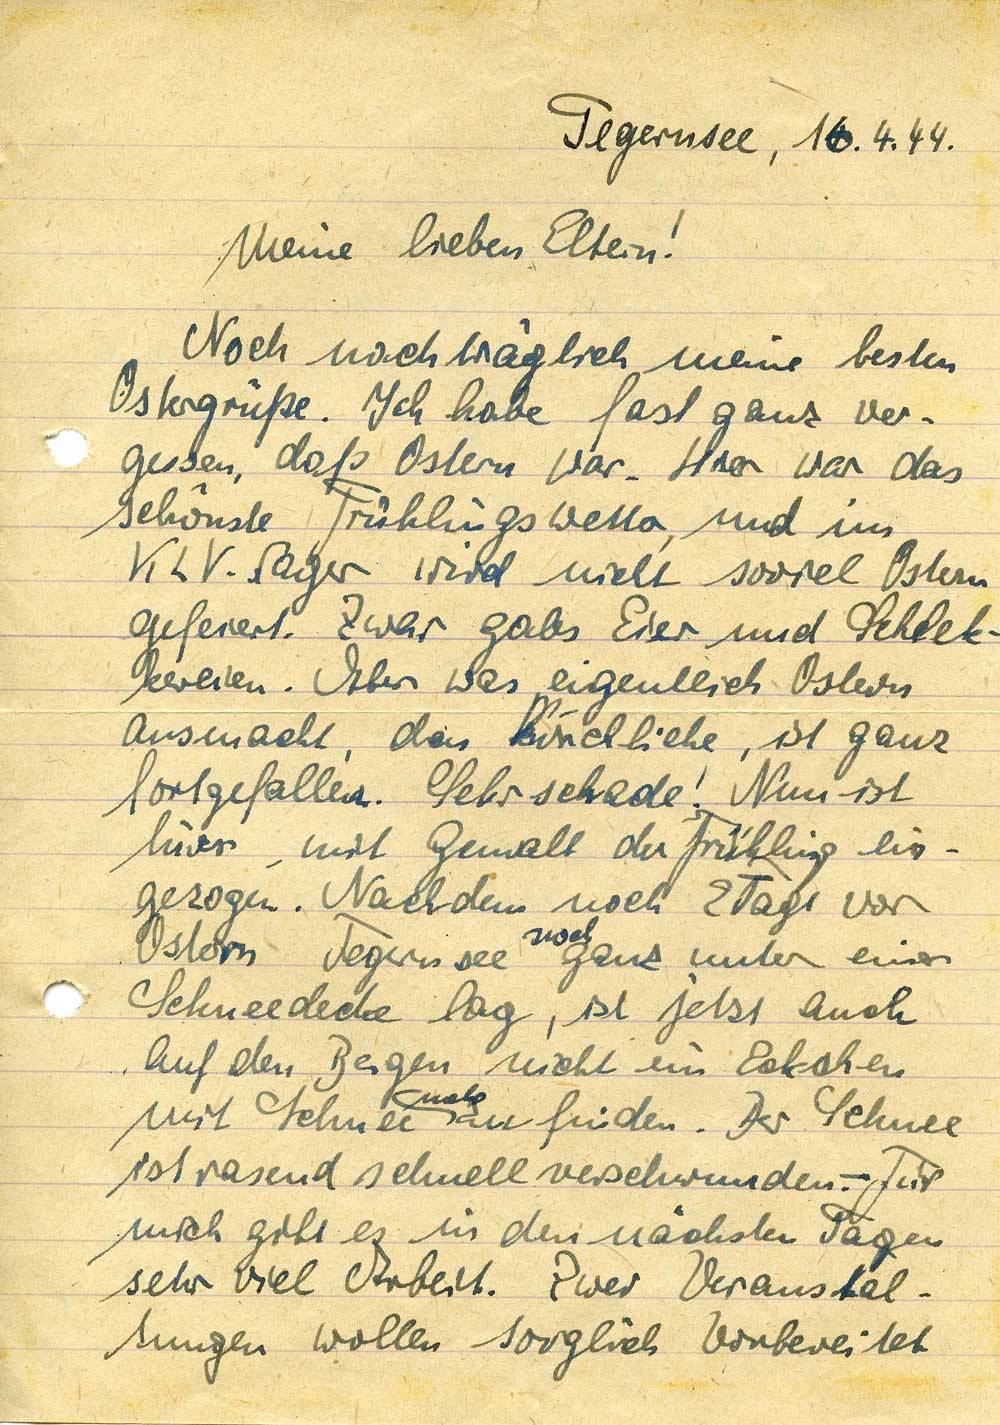 Tegernsee, 16.4.44.
Meine lieben Eltern!
Noch nachträglich meine besten
Ostergrüße. Ich habe fast ganz ver-
gessen, daß Ostern war. Hier war das
schönste Frühlingswetter, und im
KLV-Lager wird nicht soviel Ostern
gefeiert. Zwar gabs Eier und Schlek-
kereien. Aber was eigentlich Ostern
ausmacht, das Kirchliche, ist ganz
fortgefallen. Sehr schade! Nun ist
hier mit Gewalt der Frühling ein-
gezogen. Nachdem noch 2 Tage vor
Ostern Tegernsee noch ganz unter einer
Schneedecke lag, ist jetzt auch
auf den Bergen nicht ein Eckchen
mit Schnee mehr zu finden. Der Schnee
ist rasend schnell verschwunden. – Für
mich gibt es in den nächsten Tagen
sehr viel Arbeit. Zwei Veranstal-
tungen wollen sorglich vorbereitet